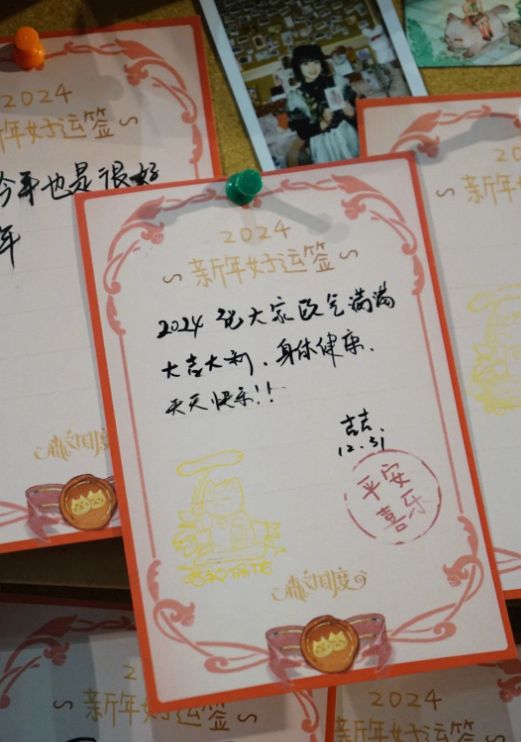 2024
新年好运签
今年也是很好
年
2024
新年好运签
2024 祝大家欧气满满
大吉大利、身体健康、
天天快乐!!
吉吉.
12.31
平安
喜乐
新年
2
新年好运签
2024
新年好运签